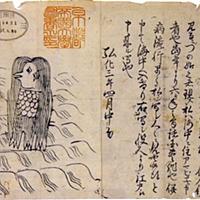 見るニづの如之者現ス私ハ海中ニ住アマビヱト申
者也當年より六ヶ年之間諸国豊作也併
病流行早々私シ写シ人々ニ見セ候得と
申て海中へ入けり右ハ写シ役人より江戸え
申来ル写也
弘化三年四月中旬